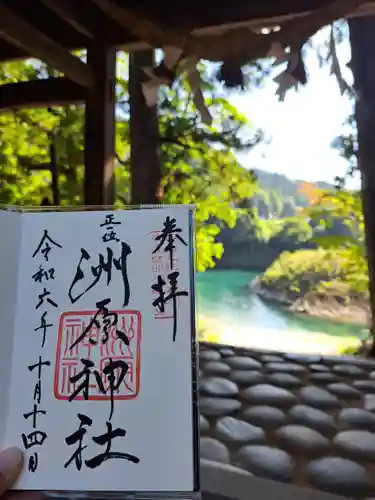 奉拝
正一位
洲原神社
令和六年十月十四日
洲原神社